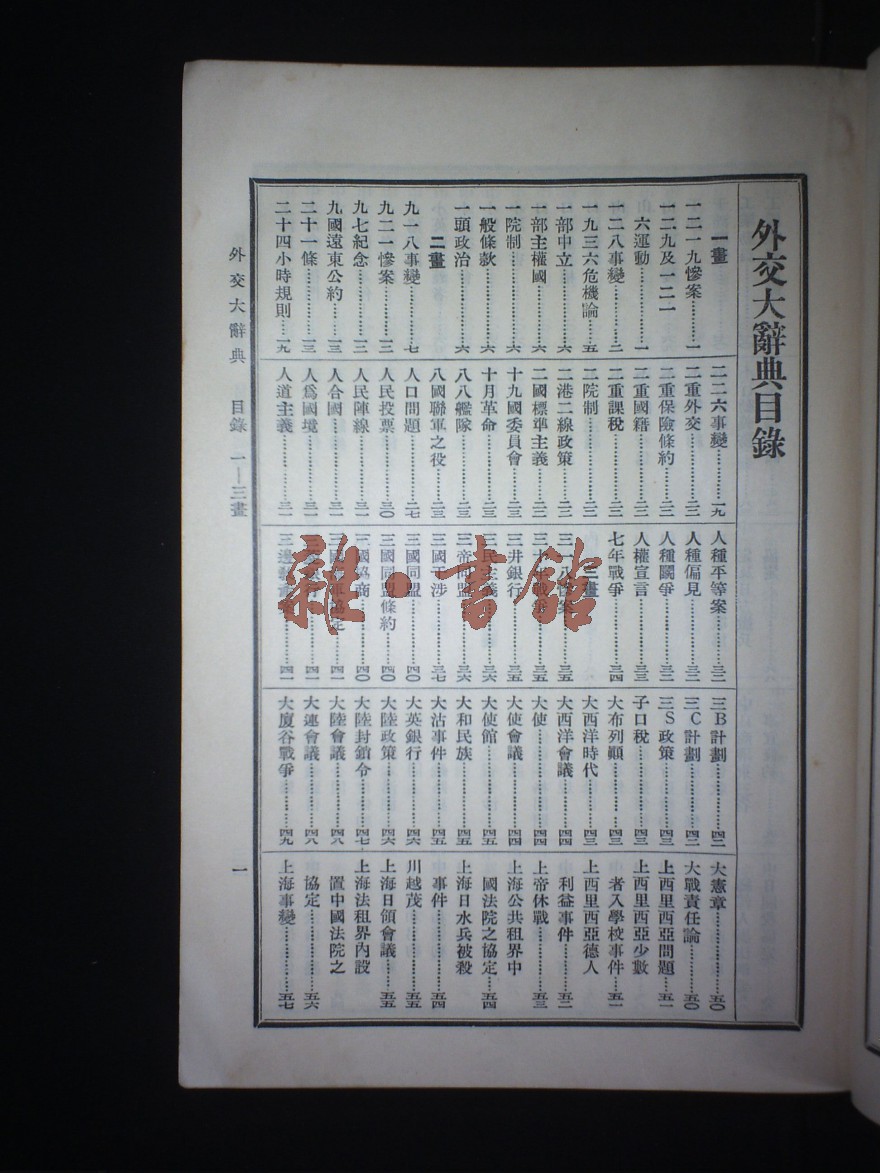 外交大辭典目錄
一畫
一二一九慘案……一
一二九及一二一
六運動……一
一二八事變……二
一九三六危機論……五
一部中立……六
一部主權國……六
一院制……六
一般條款……六
一頭政治……六
二畫
九一八事變……七
九二一慘案……一二
九七紀念……一二
九國遠東公約……一三
二十一條……一三
二十四小時規則……一九
二二六事變……一九
二重外交……二二
二重保險條約……二二
二重國籍……二二
二重課稅……二二
二院制……二二
二港二線政策……二二
二國標準主義……二二
十九國委員會……二三
十月革命……二三
八八艦隊……二三
八國聯軍之役……二三
人口問題……二七
人民投票……三〇
人民陣線……三一
人合國……三一
人爲國境……三一
人道主義……三一
人種平等案……三二
人種偏見……三二
人種鬭爭……三二
人權宣言……三三
七年戰爭……三四
三畫
三一八慘案……三五
三十年戰爭……三五
三井銀行……三五
三民主義……三六
三帝同盟……三六
三國干涉……三七
三國同盟……四〇
三國同盟條約……四〇
三國協商……四〇
三國海軍協定……四一
三……四一
三邊……四一
三B計劃……四二
三C計劃……四二
三S政策……四三
子口稅……四三
大布列顚……四三
大西洋時代……四三
大西洋會議……四四
大使……四四
大使會議……四四
大使館……四五
大和民族……四五
大沽事件……四五
大英銀行……四六
大陸政策……四六
大陸封鎖令……四七
大陸會議……四八
大連會議……四八
大廈谷戰爭……四九
大憲章……五〇
大戰責任論……五〇
上西里西亞問題……五一
上西里西亞少數
者入學校事件……五一
上西里西亞德人
利益事件……五二
上帝休戰……五三
上海公共租界中
國法院之協定……五四
上海日水兵被殺
事件……五四
川越茂……五五
上海日領會議……五五
上海法租界內設
置中國法院之
協定……五六
上海事變……五七
外交大辭典 目錄 一—三畫
一
雜·書館